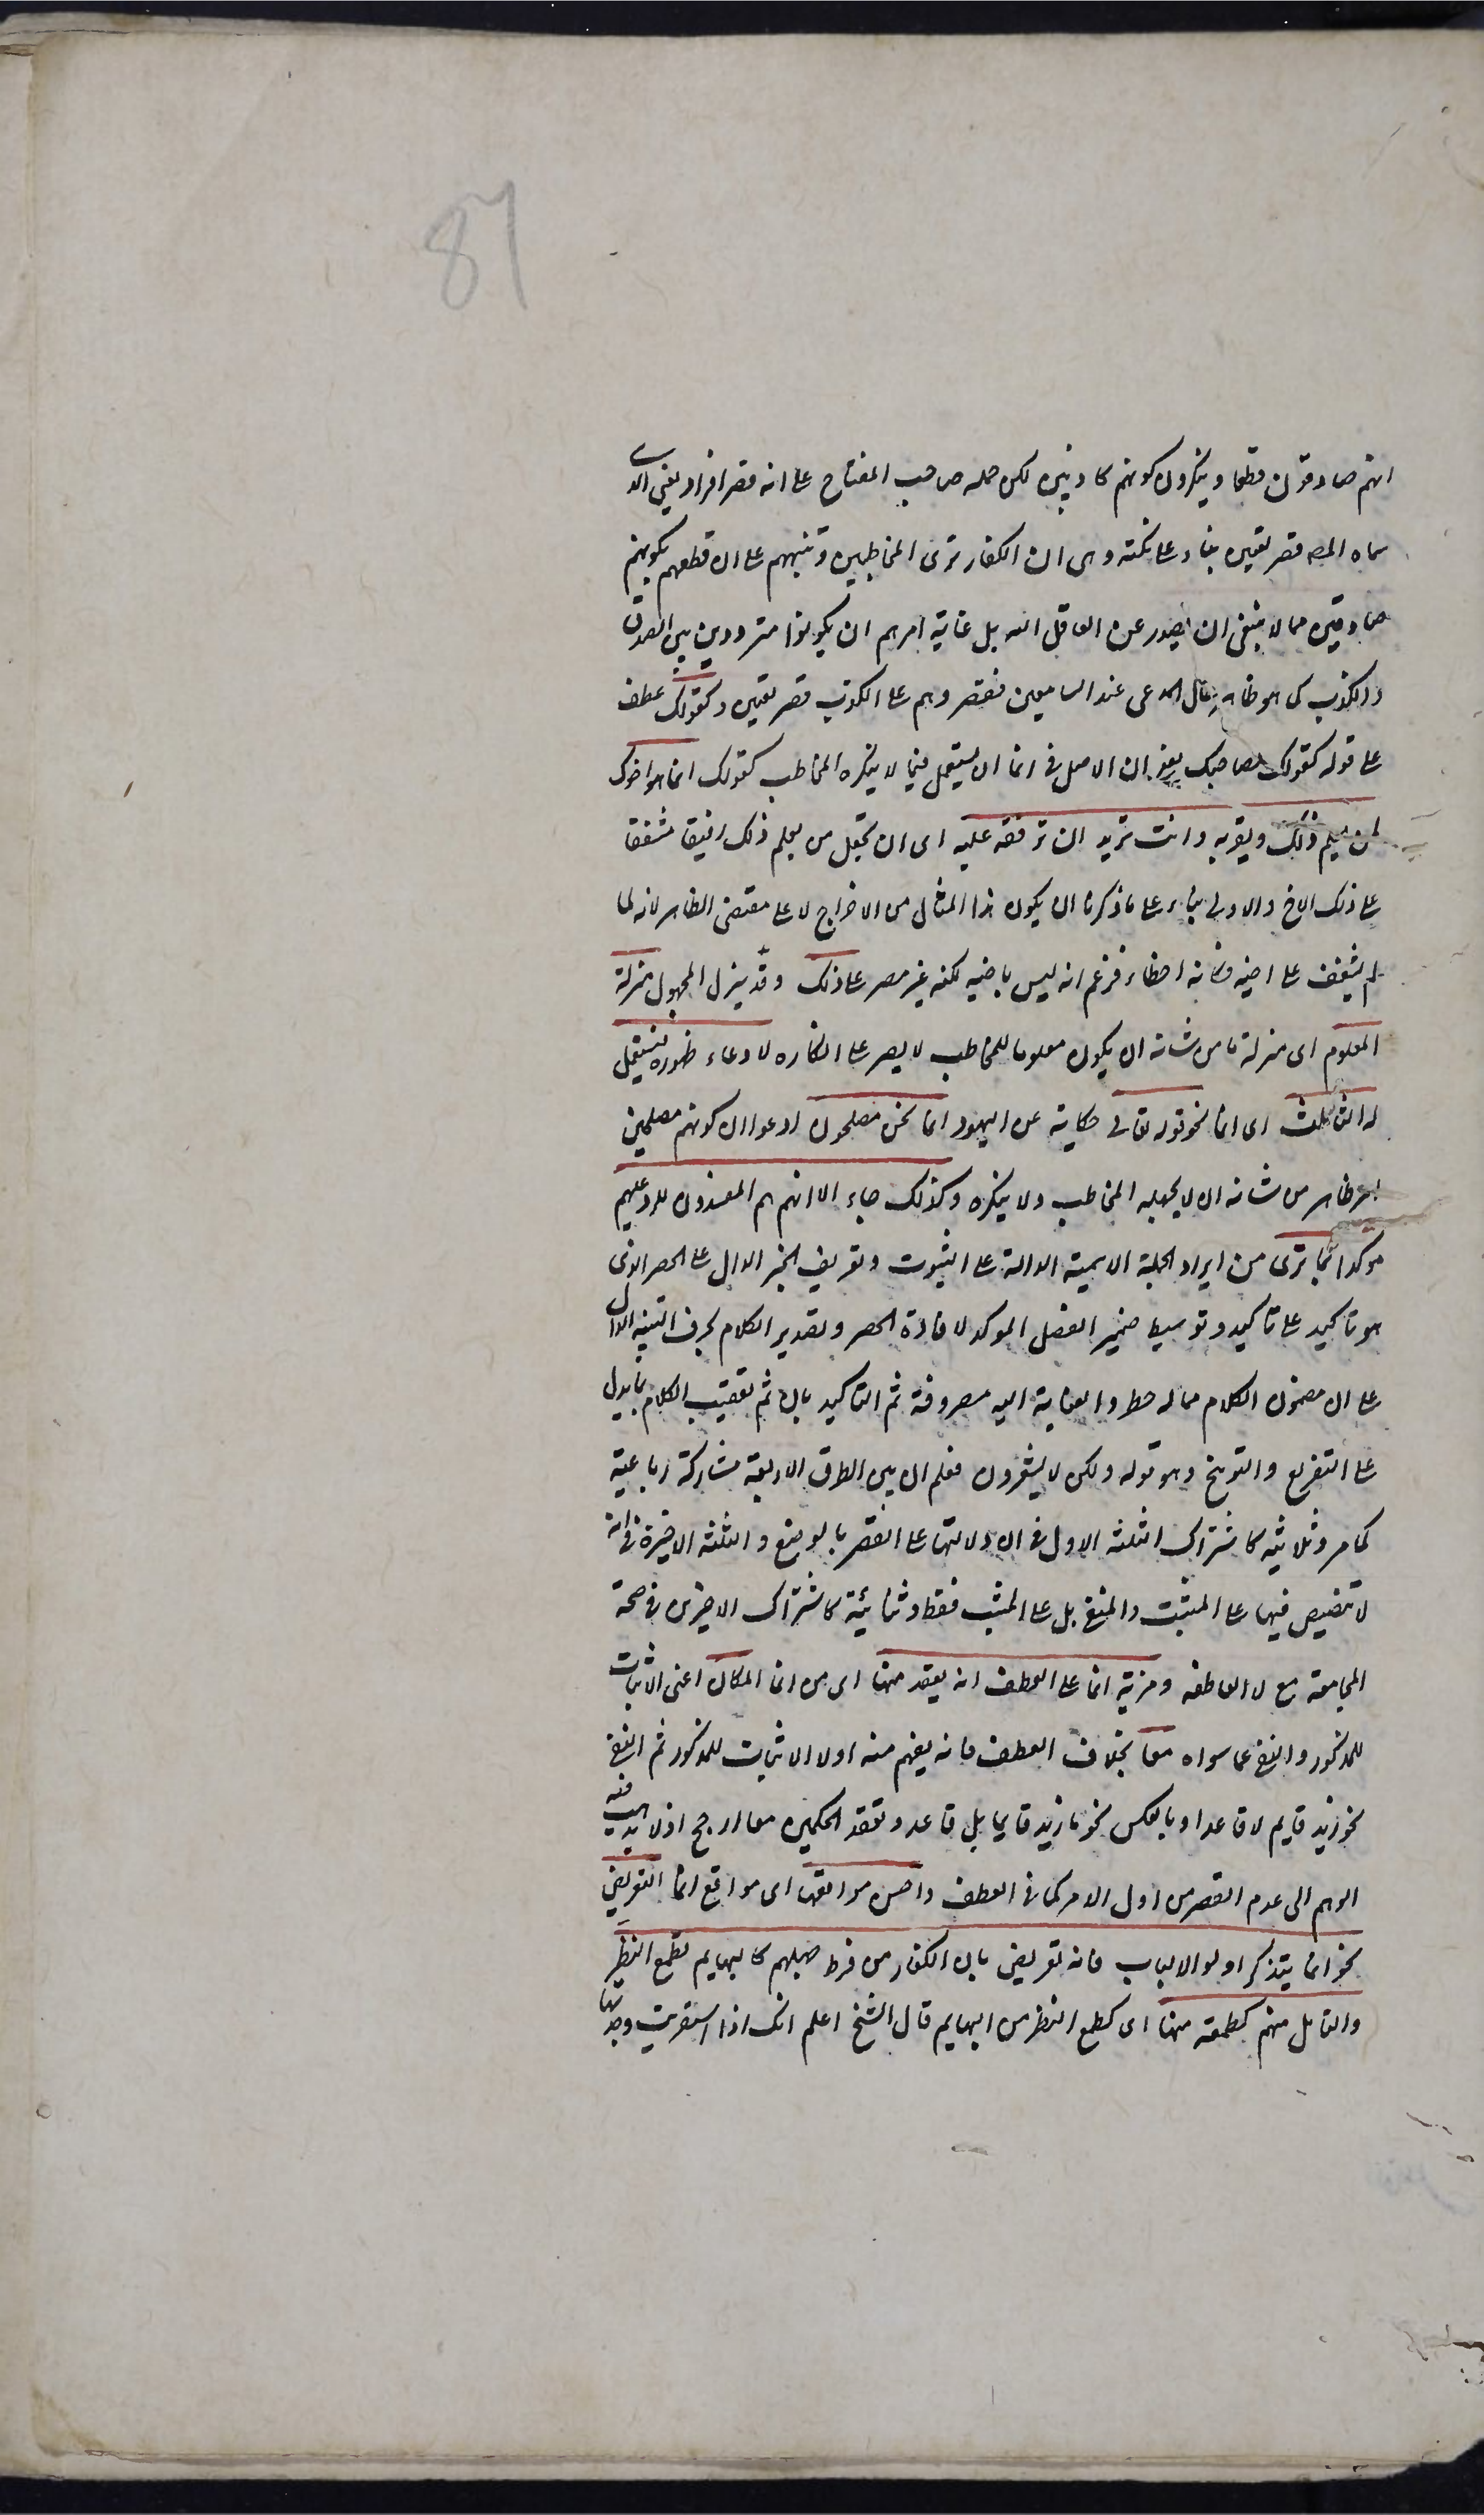 87
انهم صادقون قطعا وينكرون كونهم كاذبين لكن حمله صاحب المفتاح على انه قصر افراد يعني الذي
سماه المص قصر تعيين بناء على نكتة وهى ان الكفار ترى المخاطبين وتنبههم على ان قطعهم بكونهم
صادقين مما لا ينبغى ان يصدر عن العاقل البته بل غاية امرهم ان يكونوا مترددين بين الصدق
والكذب كما هو ظاهر حال المدعى عند السامعين فقصروهم على الكذب قصر تعيين وكقولك عطف
على قوله كقولك لصاحبك يعنى ان الاصل فى انما ان يستعمل فيما لا ينكره المخاطب كقولك انما هو اخوك
لمن يعلم ذلك ويقر به وانت تريد ان ترققه عليه اى ان تجعل من يعلم ذلك رقيقا مشفقا
على ذلك الاخ والاولى بناء على ما ذكرنا ان يكون هذا المثال من الاخراج لا على مقتضى الظاهر لانه لما
لم يشفق على اخيه فكانه اخطاء فزعم انه ليس باخيه لكنه غير مصر على ذلك وقد ينزل المجهول منزلة
المعلوم اى منزلة ما من شانه ان يكون معلوما للمخاطب لا يصر على انكاره لادعاء ظهوره فيستعمل
له الثالث اى انما نحو قوله تعالى حكاية عن اليهود انما نحن مصلحون ادعوا ان كونهم مصلحين
امر ظاهر من شانه ان لا يجهله المخاطب ولا ينكره وكذلك جاء الا انهم هم المفسدون للرد عليهم
موكدا بما ترى من ايراد الجملة الاسمية الدالة على الثبوت وتعريف الخبر الدال على الحصر الذى
هو تاكيد على تاكيد وتوسيط ضمير الفصل الموكد لافادة الحصر وتصدير الكلام بحرف التنبيه الدال
على ان مضمون الكلام مما له خطر والعناية اليه مصروفة ثم التاكيد بان ثم تعقيب الكلام بما يدل
على التقريع والتوبيخ وهو قوله ولكن لا يشعرون فعلم ان بين الطرق الاربعة مشاركة رباعية
كما مر وثلاثية كاشتراك الثلثة الاول فى ان دلالتها على القصر بالوضع والثلثة الاخيرة فى انه
لا تنصيص فيها على المثبت والمنفى بل على المثبت فقط وثنائية كاشتراك الاخيرين فى صحة
المجامعة مع لا العاطفه ومزية انما على العطف انه يعقد منها اى من انما الحكمان اعنى الاثبات
للمذكور والنفى عما سواه معا بخلاف العطف فانه يفهم منه اولا الاثبات للمذكور ثم النفى
نحو زيد قايم لا قاعد او بالعكس نحو ما زيد قايما بل قاعد وتعقد الحكمين معا ارجح اذ لا يذهب فيه
الوهم الى عدم القصر من اول الامر كما فى العطف واحسن مواقعها اى مواقع انما التعريض
نحو انما يتذكر اولوا الالباب فانه تعريض بان الكفار من فرط جهلهم كالبهايم فطمع النظر
والتامل منهم كطمعه منها اى كطمع النظر من البهايم قال الشيخ اعلم انك اذا استقريت وجدتها